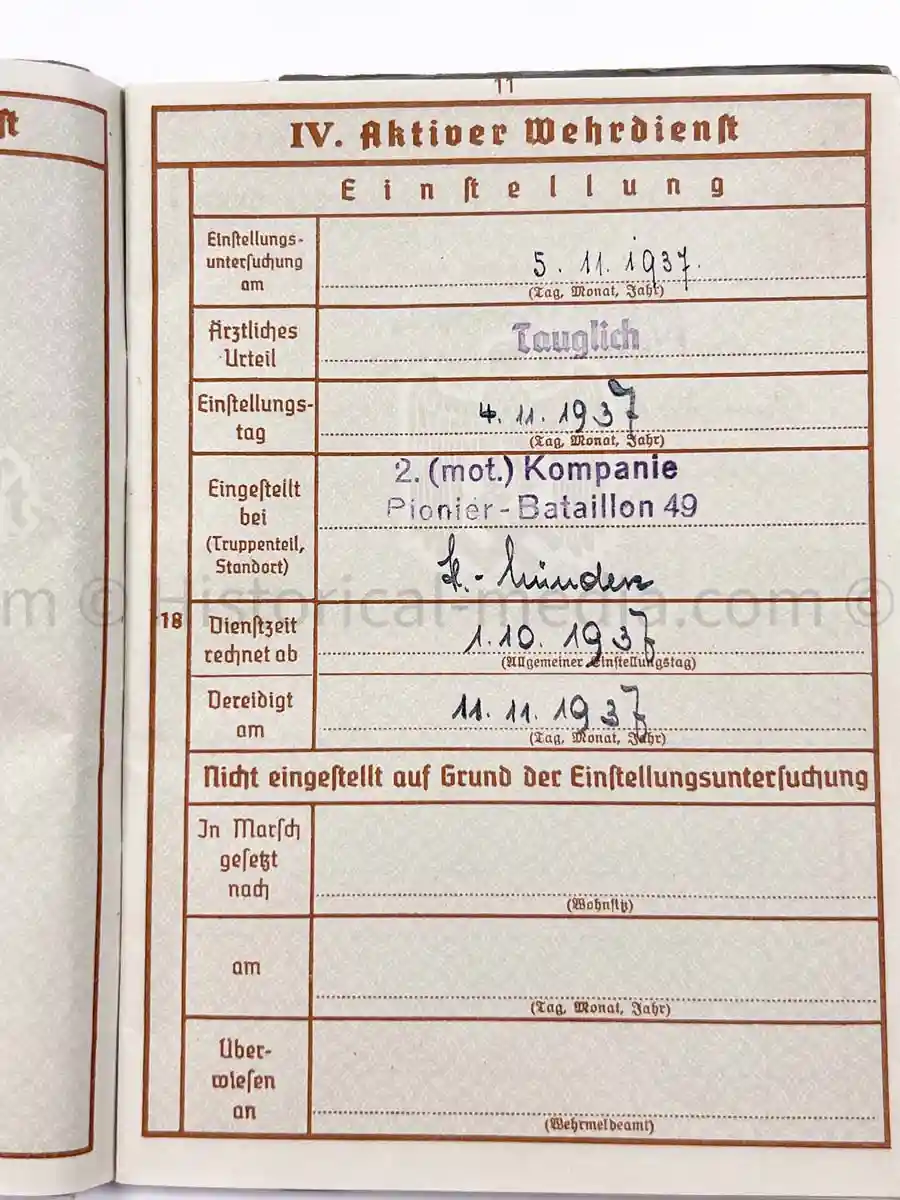 st
11
IV. Aktiver Wehrdienst
Einstellung
Einstellungs-
untersuchung
am
5. 11. 1937.
(Tag, Monat, Jahr)
Ärztliches
Urteil
Tauglich
Einstellungs-
tag
4. 11. 1937
(Tag, Monat, Jahr)
Eingestellt
bei
(Truppenteil,
Standort)
2. (mot.) Kompanie
Pionier-Bataillon 49
H.- Münden
18
Dienstzeit
rechnet ab
1. 10. 1937
(Allgemeiner Einstellungstag)
Vereidigt
am
11. 11. 1937
(Tag, Monat, Jahr)
Nicht eingestellt auf Grund der Einstellungsuntersuchung
In Marsch
gesetzt
nach
(Wohnsitz)
am
(Tag, Monat, Jahr)
Über-
wiesen
an
(Wehrmeldeamt)
m © Historical-media.com ©